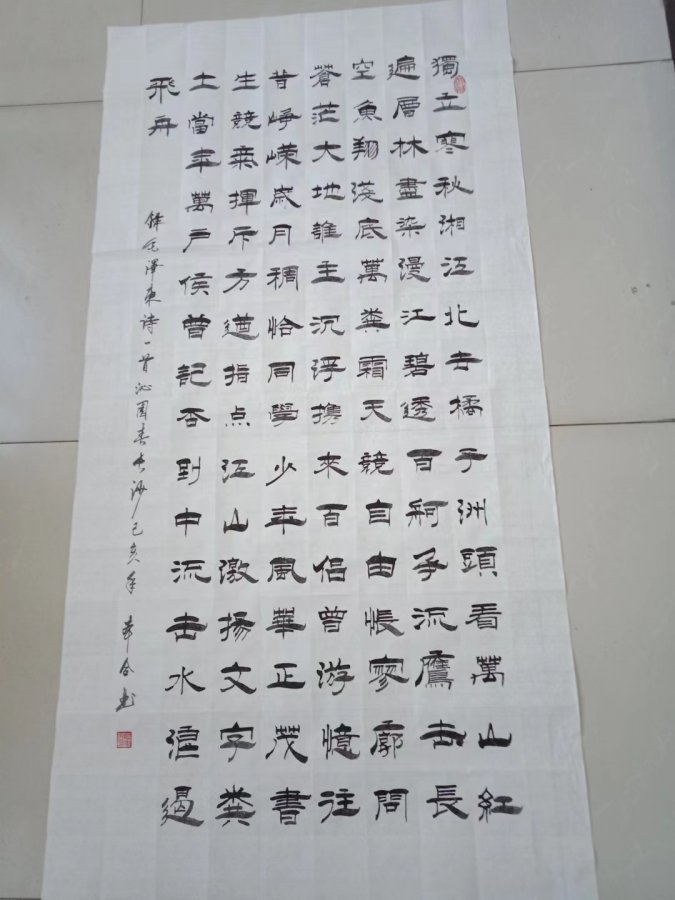 獨立寒秋湘江北去橘子洲頭看萬山紅
遍層林盡染漫江碧透百舸争流鷹击長
空魚翔淺底萬糞霜天競自由悵寥廓問
蒼茫大地誰主沉浮携來百侣曾游憶往
昔崢嶸歲月稠恰同學少年風華正茂書
生競氣揮斥方遒指点江山激揚文字糞
土當年萬户侯曾記否到中流击水浪遏
飛舟
錄毛澤東诗一首沁園春長沙己亥年